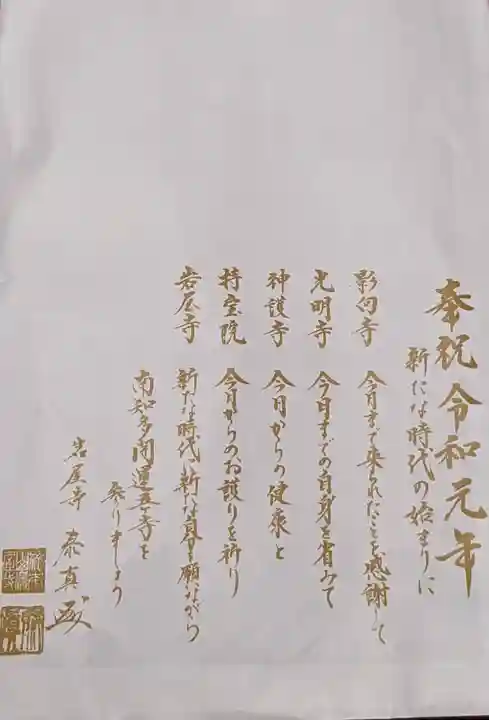 奉祝令和元年
新たな時代の始まりに
影向寺 今日まで来られたことを感謝して
光明寺 今日までの自身を省みて
神護寺 今日からの健康と
持宝院 今日からのお護りを祈り
岩屋寺 新たな時代、新たな自身を願いながら
南知多開運五ヶ寺を
参りましょう
岩屋寺 泰真